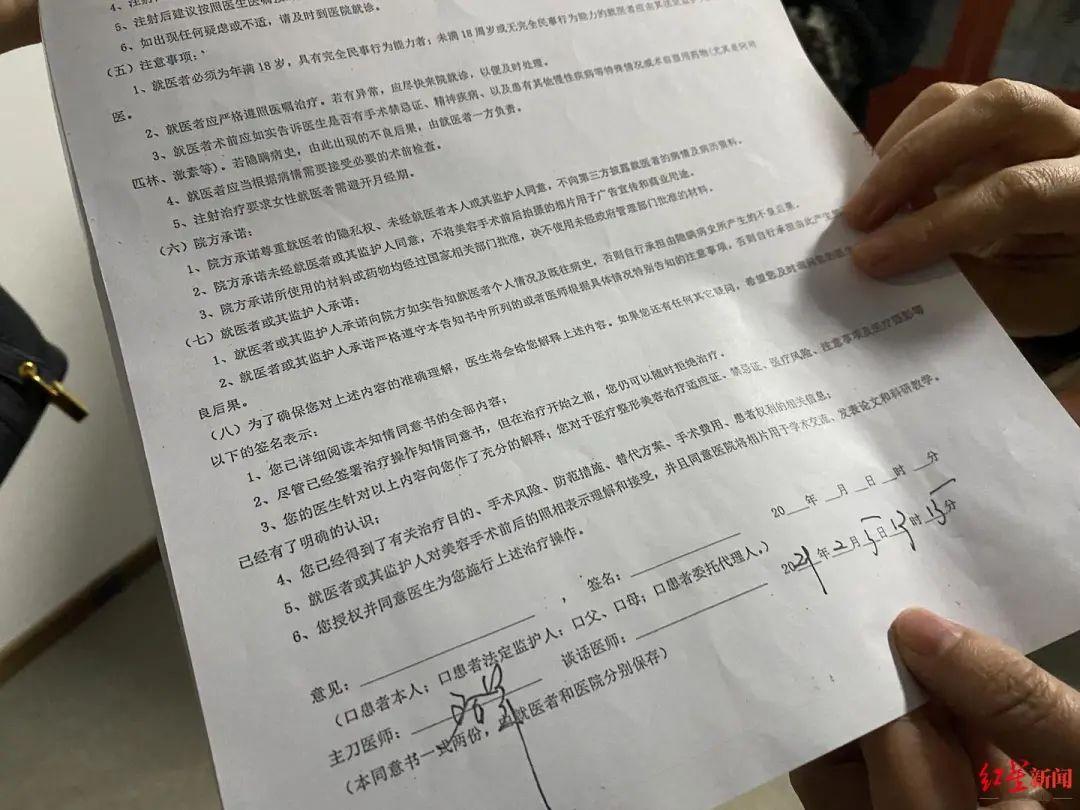 4、注射
5、注射后建议按照医生医嘱
6、如出现任何疑虑或不适，请及时到医院就诊。
（五）注意事项：
1、就医者必须为年满 18 岁，具有完全民事行为能力者；未满 18 周岁或无完全民事行为能力的就医者应由其法定监护人
医。
2、就医者应严格遵照医嘱治疗。若有异常，应尽快来院就诊，以便及时处理。
3、就医者术前应如实告诉医生是否有手术禁忌证、精神疾病、以及患有其他慢性疾病等特殊情况或术前服用药物(尤其是阿司
匹林、激素等)。若隐瞒病史，由此出现的不良后果，由就医者一方负责。
4、就医者应当根据病情需要接受必要的术前检查。
5、注射治疗要求女性就医者需避开月经期。
（六）院方承诺：
1、院方承诺尊重就医者的隐私权、未经就医者本人或其监护人同意，不向第三方披露就医者的病情及病历资料。
2、院方承诺未经就医者或其监护人同意，不将美容手术前后拍摄的相片用于广告宣传和商业用途。
3、院方承诺所使用的材料或药物均经过国家相关部门批准，决不使用未经政府管理部门批准的材料。
（七）就医者或其监护人承诺：
1、就医者或其监护人承诺向院方如实告知就医者个人情况及既往病史，否则自行承担由隐瞒病史所产生的不良后果。
2、就医者或其监护人承诺严格遵守本告知书中所列的或者医师根据具体情况特别告知的注意事项，否则自行承担由此产生
良后果。
（八）为了确保您对上述内容的准确理解，医生将会给您解释上述内容。如果您还有任何其它疑问，希望您及时
以下的签名表示：
1、您已详细阅读本知情同意书的全部内容；
2、尽管已经签署治疗操作知情同意书，但在治疗开始之前，您仍可以随时拒绝治疗。
3、您的医生针对以上内容向您作了充分的解释；您对于医疗整形美容治疗适应证、禁忌证、医疗风险、注意事项及医疗摄影等
已经有了明确的认识；
4、您已经得到了有关治疗目的、手术风险、防范措施、替代方案、手术费用、患者权利的相关信息；
5、就医者或其监护人对美容手术前后的照相表示理解和接受，并且同意医院将相片用于学术交流、发表论文和科研教学。
6、您授权并同意医生为您施行上述治疗操作。
意见：，签名： 20 年 月 日 时 分
（口患者本人；口患者法定监护人；口父、口母；口患者委托代理人。）
主刀医师： 谈话医师： 2021年2月5日13时13分
（本同意书一式两份，由就医者和医院分别保存）
红星新闻